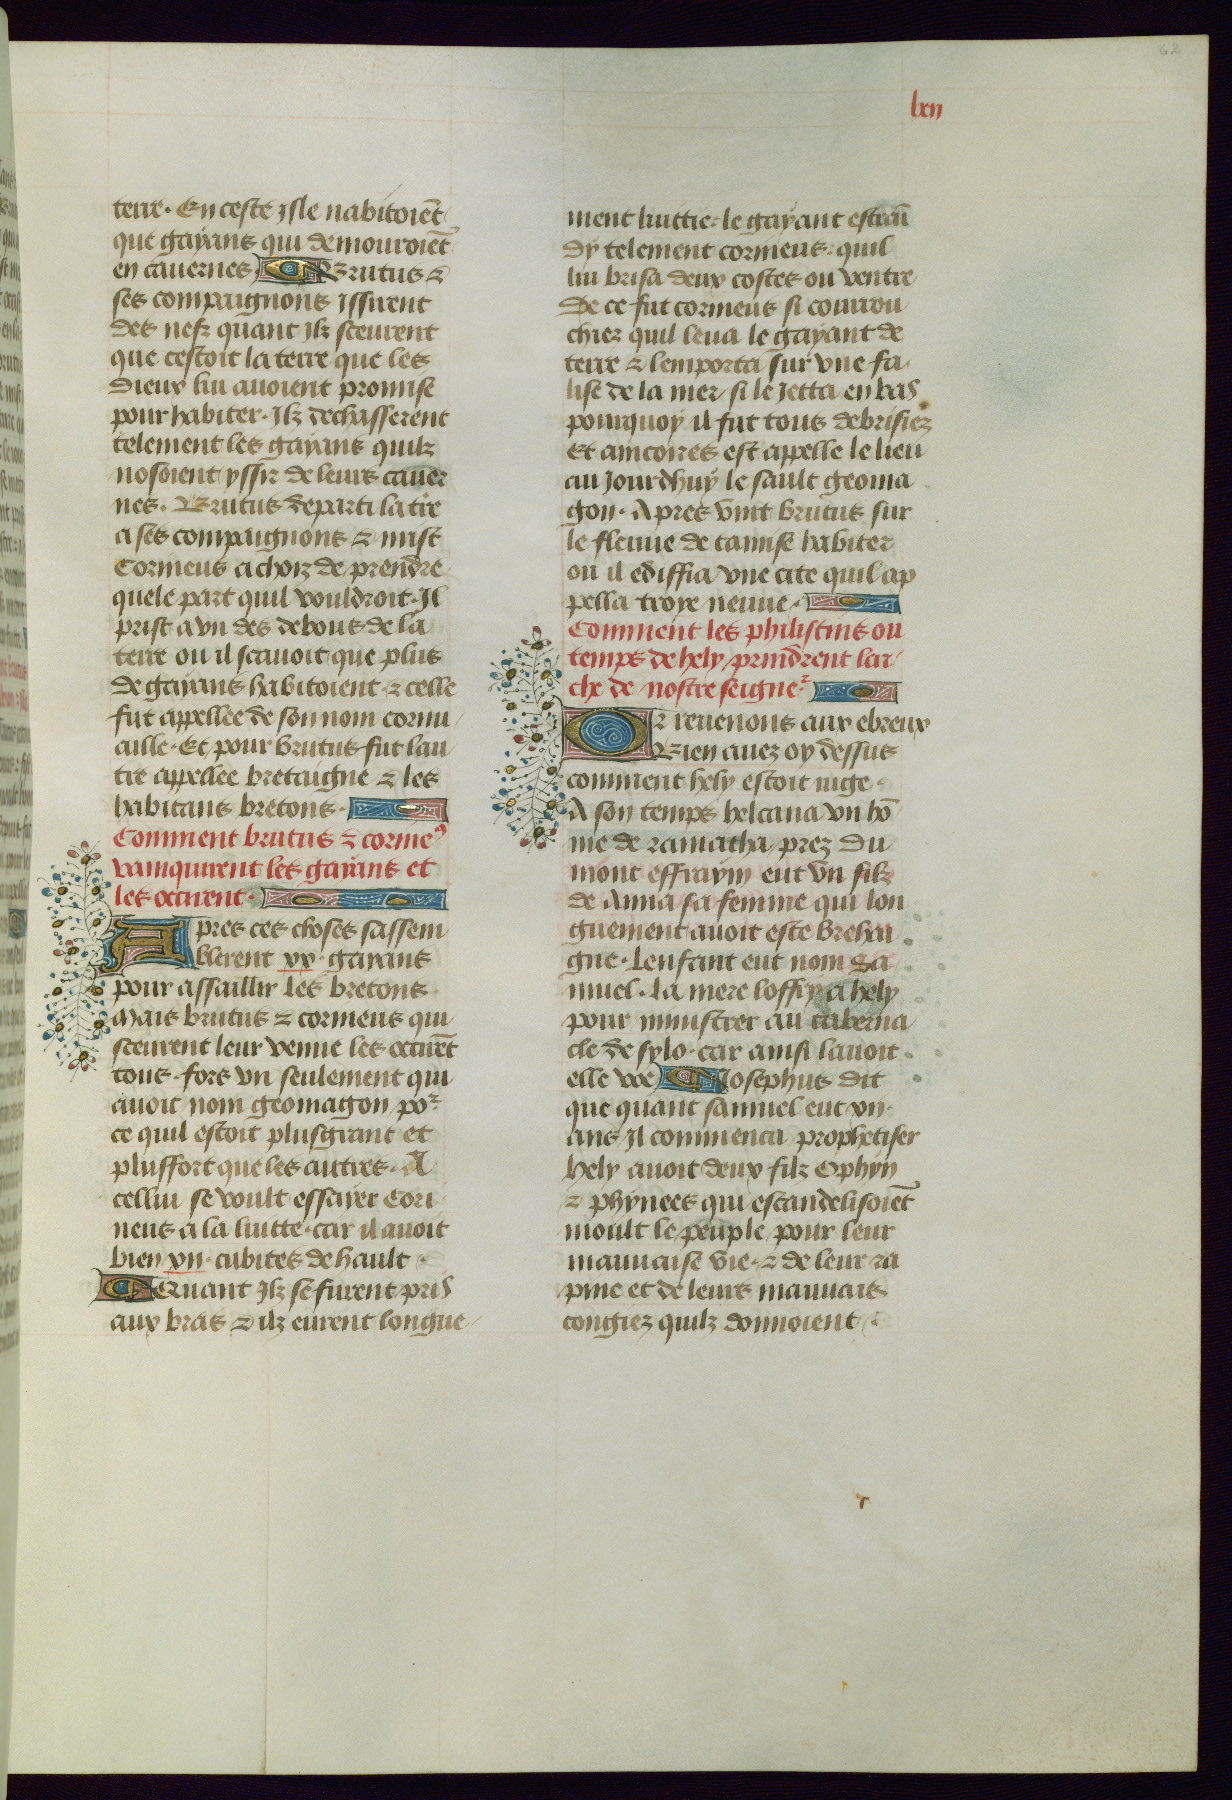 62
lxii
terre. En ceste isle nabitoiēt
que gayans qui demouroiēt
en cauernes Brutus &
ses compaignons issirent
des nefz quant ilz sceurent
que cestoit la terre que les
dieux lui auoient promise
pour habiter. Ilz dechasserent
telement les gayans quilz
nosoient yssir de leurs cauer
nes. Brutus departi la tře
a ses compaignons & mist
Corineus a choiz de prendre
quele part quil vouldroit. Il
prist a vn des debous de la
terre ou il scauoit que plus
de gayans habitoient & celle
fut appellee de son nom cornu
aille. Et pour brutus fut lau
tre appellee bretaigne & les
habitans bretons.
Comment brutus & corine⁹
vainquirent les gayans et
les occirent.
Apres ces choses sassem
blerent xx. gayans
pour assaillir les bretons
Mais brutus & corineus qui
sceurent leur venue les occirēt
tous. fors vn seulement qui
auoit nom geomagon por
ce quil estoit plusgrant et
pluffort que les autres. A
cellui se voult essayer Cori
neus a la luitte. car il auoit
bien xii. cubites de hault
Quant ilz se furent pris
aux bras & ilz eurent longue
ment luittie. le gayant estrai
dy telement corineus. quil
lui brisa deux costes ou ventre
De ce fut corineus si courrou
chiez quil leua le gayant de
terre & lemporta sur vne fa
lise de la mer. si le jetta en bas
pourquoy il fut tous debrisiez
Et aincores est appelle le lieu
au jourdhuy le sault geoma
gon. Apres vint brutus sur
le fleuue de tamise habiter
ou il ediffia vne cite quil ap
pella troye neuue.
Comment les philistins ou
temps de hely prindrent lar
che de nostre seigner
Or reuenons aux ebreux
Bien auez oy dessus
comment hely estoit iuge.
A son temps helcana vn hō
me de ramatha prez du
mont effraym eut vn filz
de Anna sa femme qui lon
guement auoit este brehai
gne. Lenfant eut nom Sa
muel. la mere loffry a hely
pour ministrer au taberna
cle de sylo. car ainsi lauoit
elle voe Josephus dit
que quant samuel eut xii.
ans il commenca prophetiser
hely auoit deux filz Ophyn
& phynees qui escandelisoiēt
moult le peuple pour leur
mauuaise vie. & de leur ra
pine et de leurs mauuais
congiez quilz donnoient